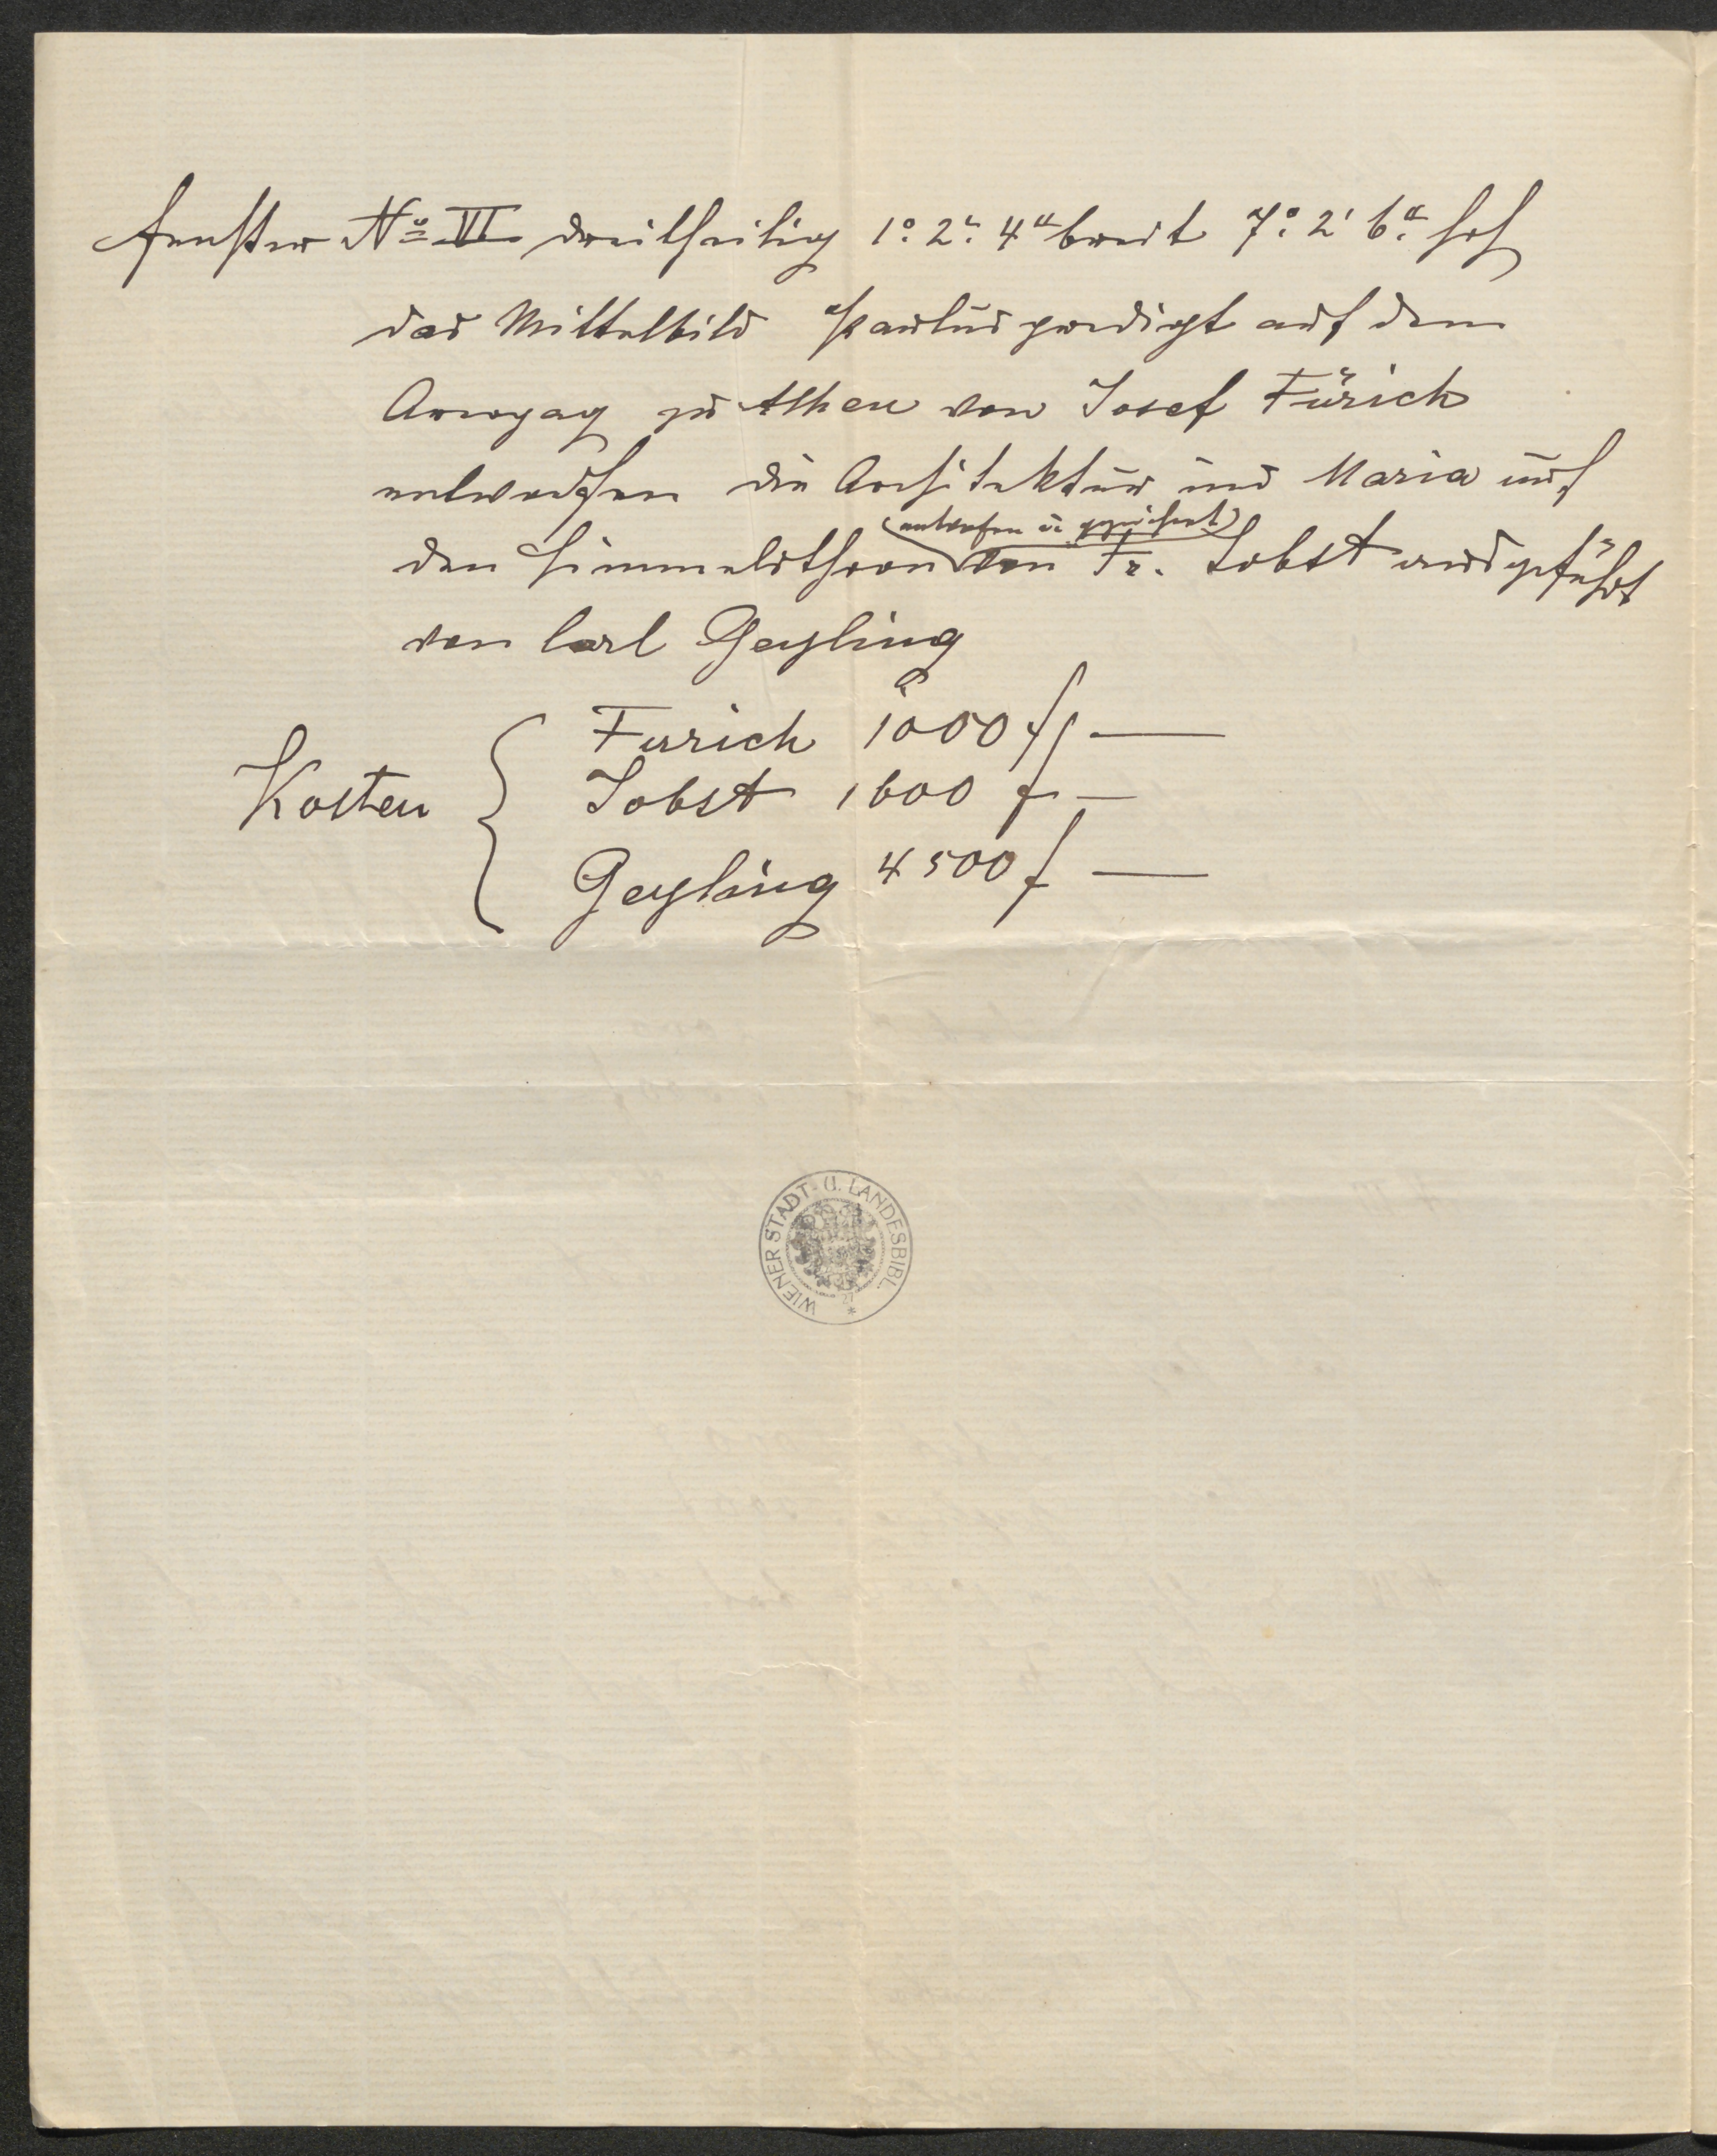 Fenster No VI dreitheilig 1° 2' 4" breit 7° 2' 6" hoh
das Mittelbild Paulus predigt auf dem
Areopag zu Athen von Josef Fürich
entworfen die Architektur und Maria auf
(entworfen u gezeichnet)
den Himmelsthron von Fr. Jobst ausgeführt
von Carl Geyling
Kosten
Furich 1000 f —
Jobst 1600 f —
Geyling 4500 f —
WIENER STADT- U. LANDESBIBL. *